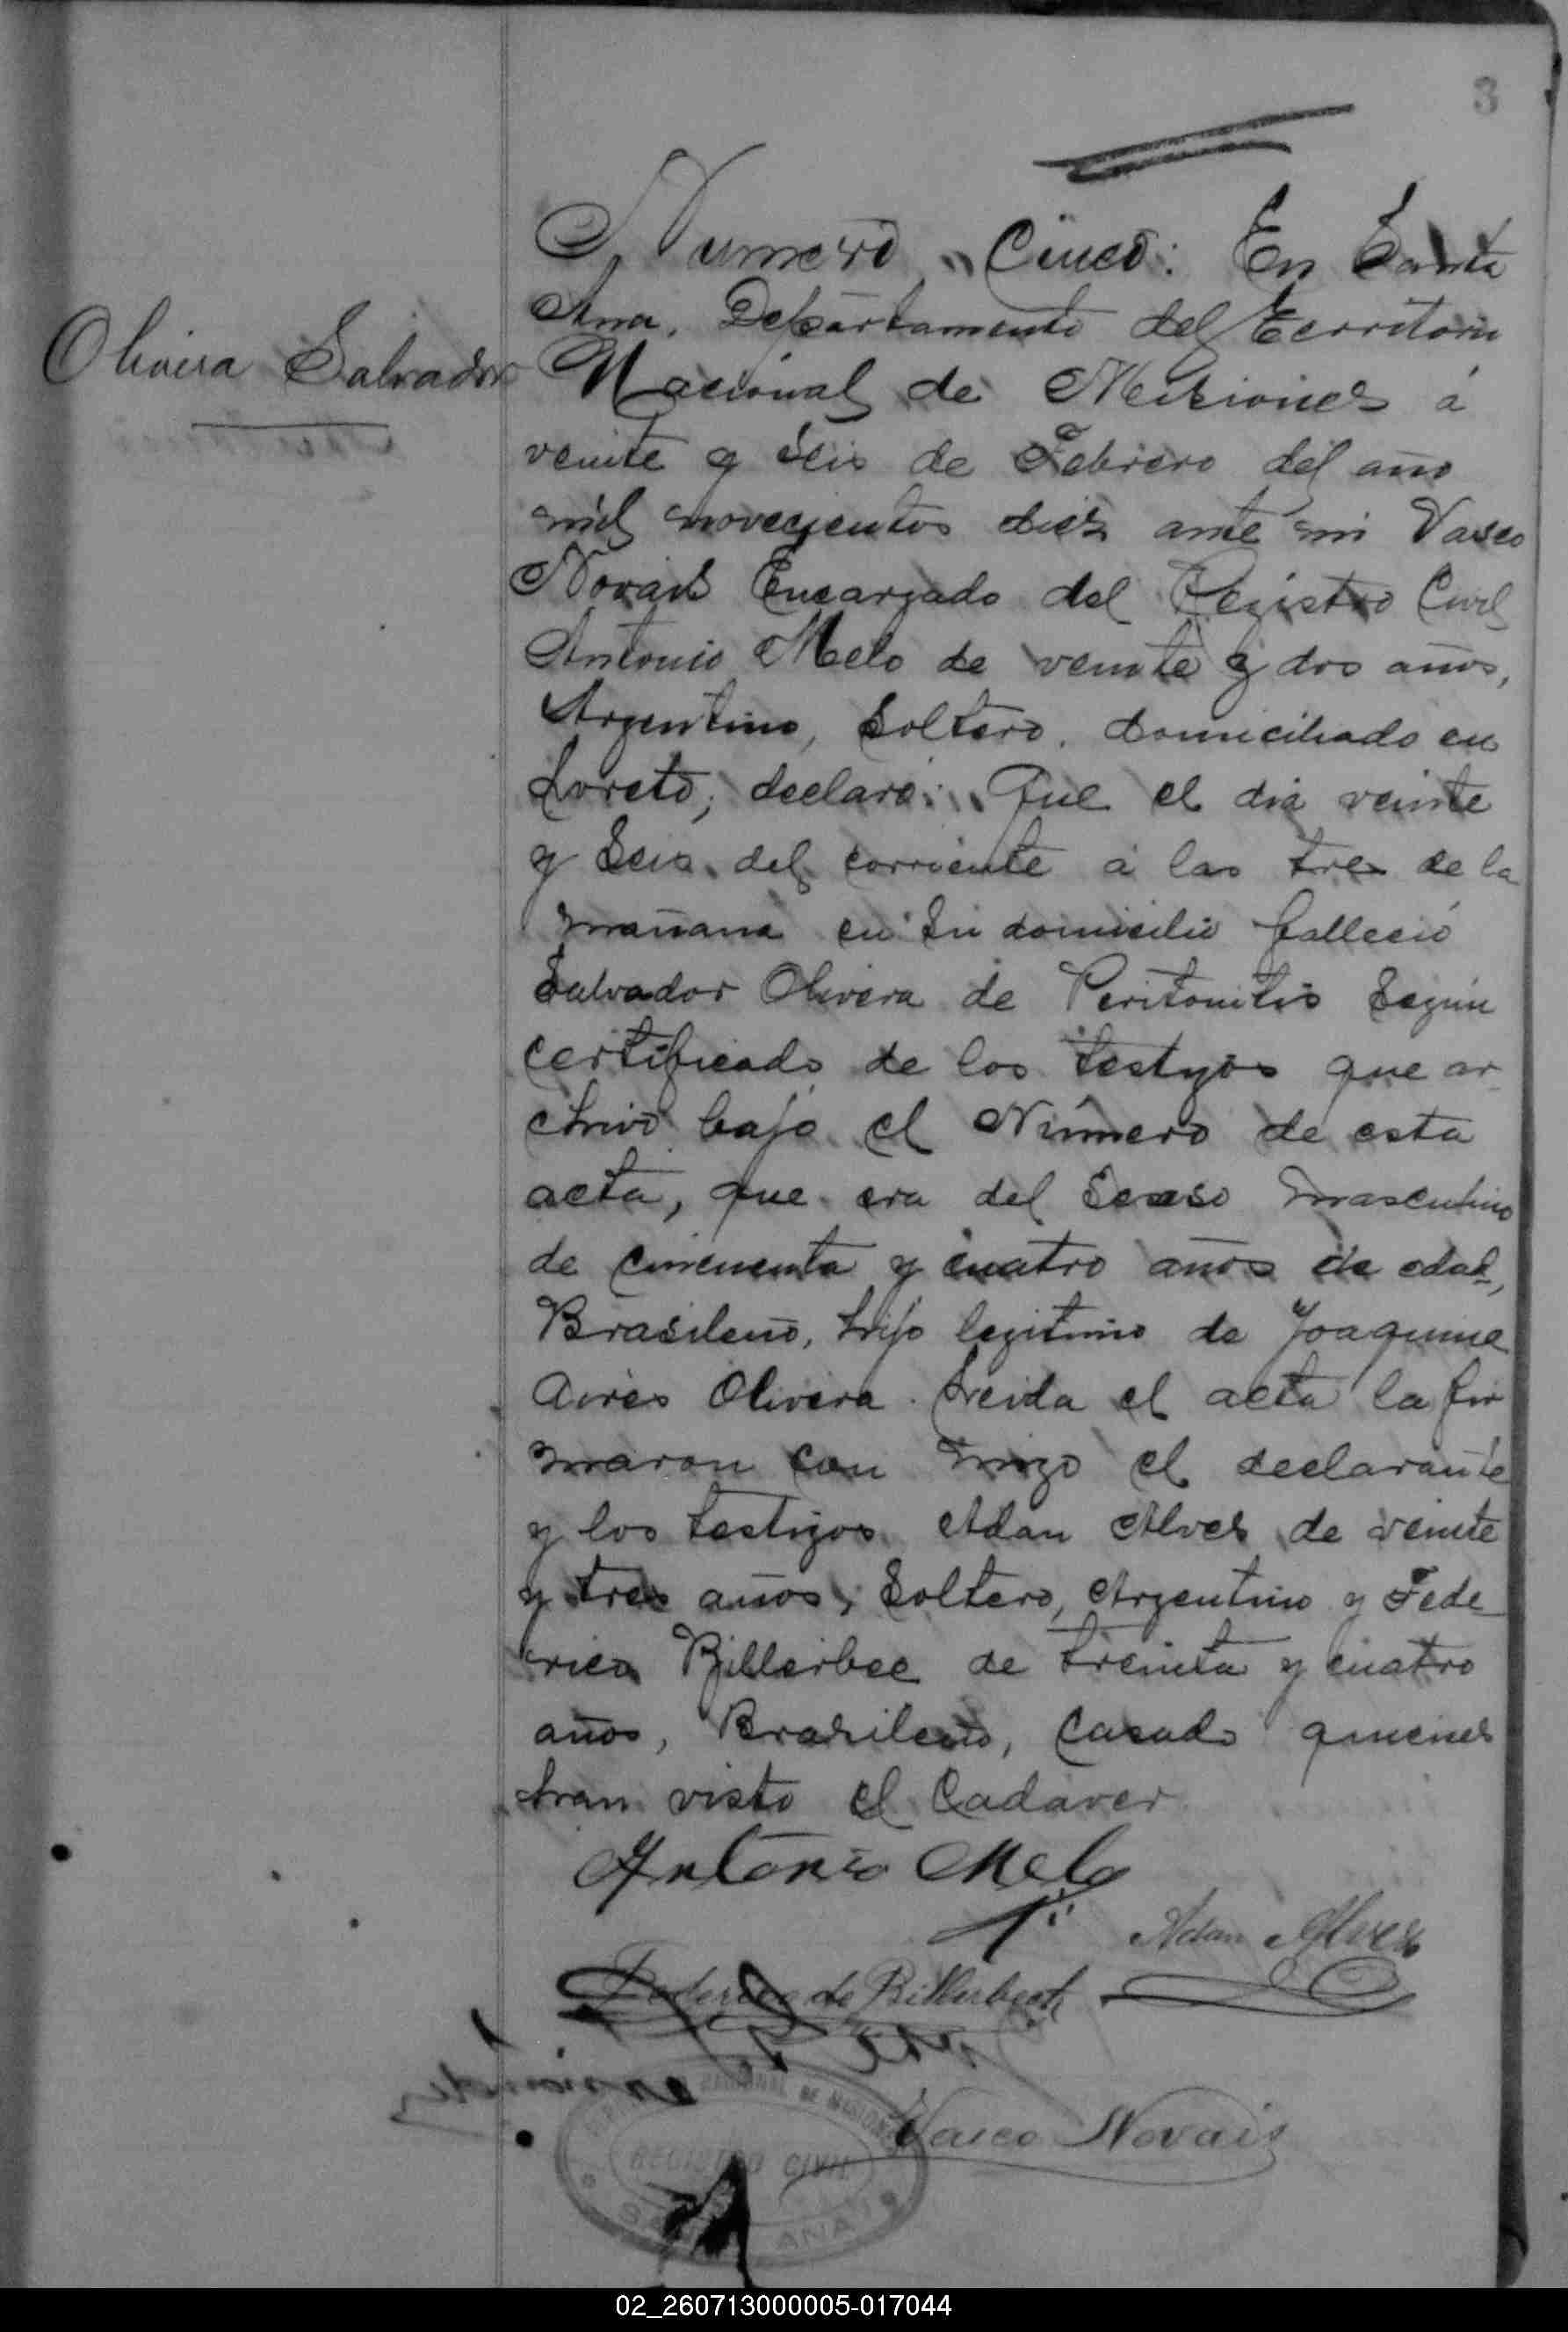 3
Número „Cinco: En Santa
Ana, Departamento del Territorio
Olivera Salvador
Nacional de Misiones á
veinte y seis de Febrero del año
mil novecientos diez ante mi Vasco
Novais Encargado del Registro Civil
Antonio Melo de veinte y dos años,
Argentino, Soltero, domiciliado en
Loreto; declaró: „Que el dia veinte
y Seis del corriente á las tres de la
mañana en su domicilio falleció
Salvador Olivera de Peritonitis Según
certificado de los testigos que ar
chivo bajo el Número de esta
acta, que era del Sexso masculino
de cincuenta y cuatro años de edad,
Brasileño, hijo legitimo de Joaquina
Aires Olivera. Leida el acta la fir
maron con migo el declarante
y los testigos Adan Alves de veinte
y tres años, Soltero, Argentino y Fede
rico Billerbec de treinta y cuatro
años, Brasileño, Casado quienes
han visto el Cadaver
Antonio Melo
Adan Alves
Federico de Billerbeck
Vasco Novais
NACIONAL DE MISIONES
REGISTRO CIVIL
SANTA ANA
02_260713000005-017044